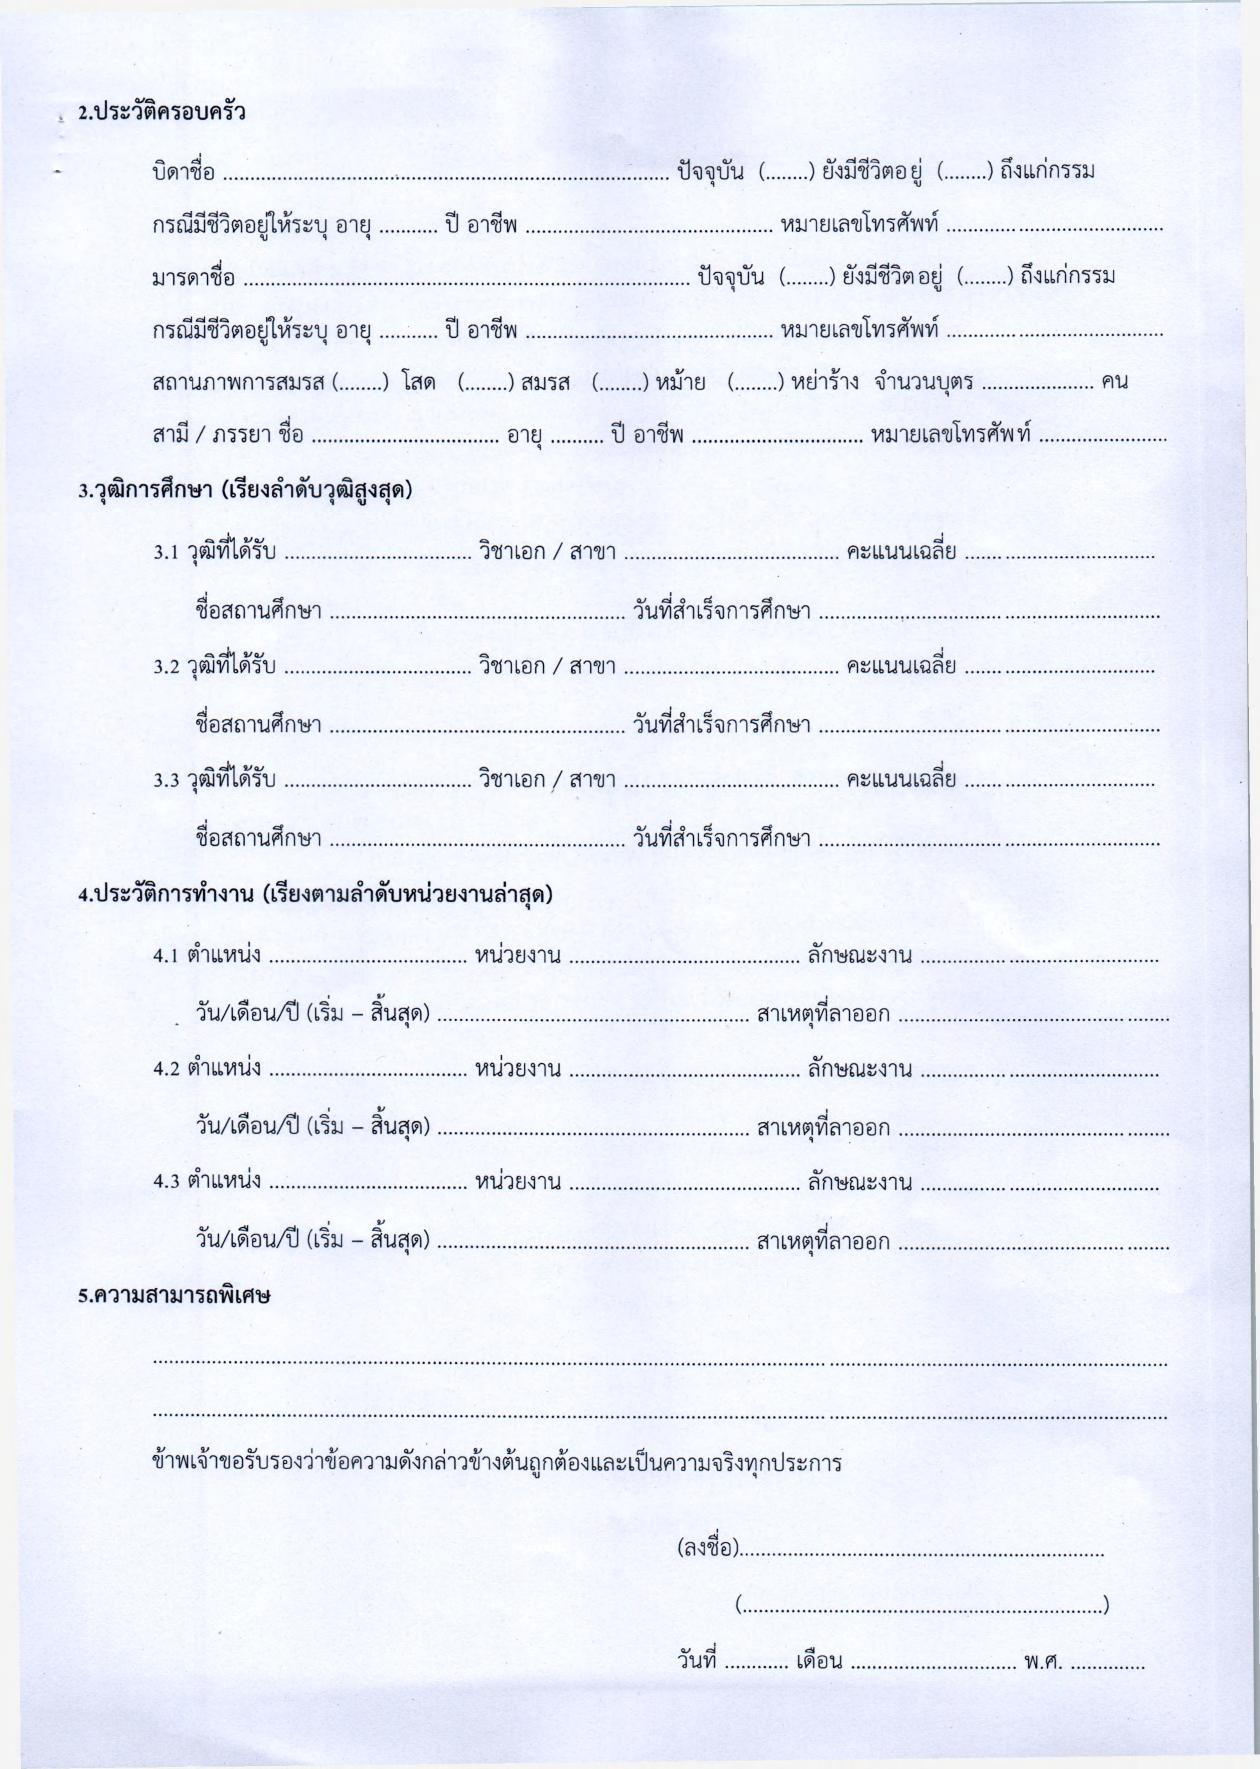 2.ประวัติครอบครัว
บิดาชื่อ ................................................................................... ปัจจุบัน (........) ยังมีชีวิตอยู่ (........) ถึงแก่กรรม
กรณีมีชีวิตอยู่ให้ระบุ อายุ ........... ปี อาชีพ .............................................. หมายเลขโทรศัพท์ ........................................
มารดาชื่อ ................................................................................... ปัจจุบัน (........) ยังมีชีวิตอยู่ (........) ถึงแก่กรรม
กรณีมีชีวิตอยู่ให้ระบุ อายุ ........... ปี อาชีพ .............................................. หมายเลขโทรศัพท์ ........................................
สถานภาพการสมรส (........) โสด (........) สมรส (........) หม้าย (........) หย่าร้าง จำนวนบุตร ..................... คน
สามี / ภรรยา ชื่อ ................................... อายุ .......... ปี อาชีพ ................................ หมายเลขโทรศัพท์ ........................
3.วุฒิการศึกษา (เรียงลำดับวุฒิสูงสุด)
3.1 วุฒิที่ได้รับ ................................... วิชาเอก / สาขา ........................................ คะแนนเฉลี่ย ...................................
ชื่อสถานศึกษา ....................................................... วันที่สำเร็จการศึกษา ...............................................................
3.2 วุฒิที่ได้รับ ................................... วิชาเอก / สาขา ........................................ คะแนนเฉลี่ย ...................................
ชื่อสถานศึกษา ....................................................... วันที่สำเร็จการศึกษา ...............................................................
3.3 วุฒิที่ได้รับ ................................... วิชาเอก / สาขา ........................................ คะแนนเฉลี่ย ...................................
ชื่อสถานศึกษา ....................................................... วันที่สำเร็จการศึกษา ...............................................................
4.ประวัติการทำงาน (เรียงตามลำดับหน่วยงานล่าสุด)
4.1 ตำแหน่ง ..................................... หน่วยงาน ........................................... ลักษณะงาน ............................................
วัน/เดือน/ปี (เริ่ม – สิ้นสุด) .......................................................... สาเหตุที่ลาออก ..................................................
4.2 ตำแหน่ง ..................................... หน่วยงาน ........................................... ลักษณะงาน ............................................
วัน/เดือน/ปี (เริ่ม – สิ้นสุด) .......................................................... สาเหตุที่ลาออก ..................................................
4.3 ตำแหน่ง ..................................... หน่วยงาน ........................................... ลักษณะงาน ............................................
วัน/เดือน/ปี (เริ่ม – สิ้นสุด) .......................................................... สาเหตุที่ลาออก ..................................................
5.ความสามารถพิเศษ
............................................................................................................................................................................................
............................................................................................................................................................................................
ข้าพเจ้าขอรับรองว่าข้อความดังกล่าวข้างต้นถูกต้องและเป็นความจริงทุกประการ
(ลงชื่อ)....................................................................
(...................................................................)
วันที่ ............ เดือน ............................... พ.ศ. ..............